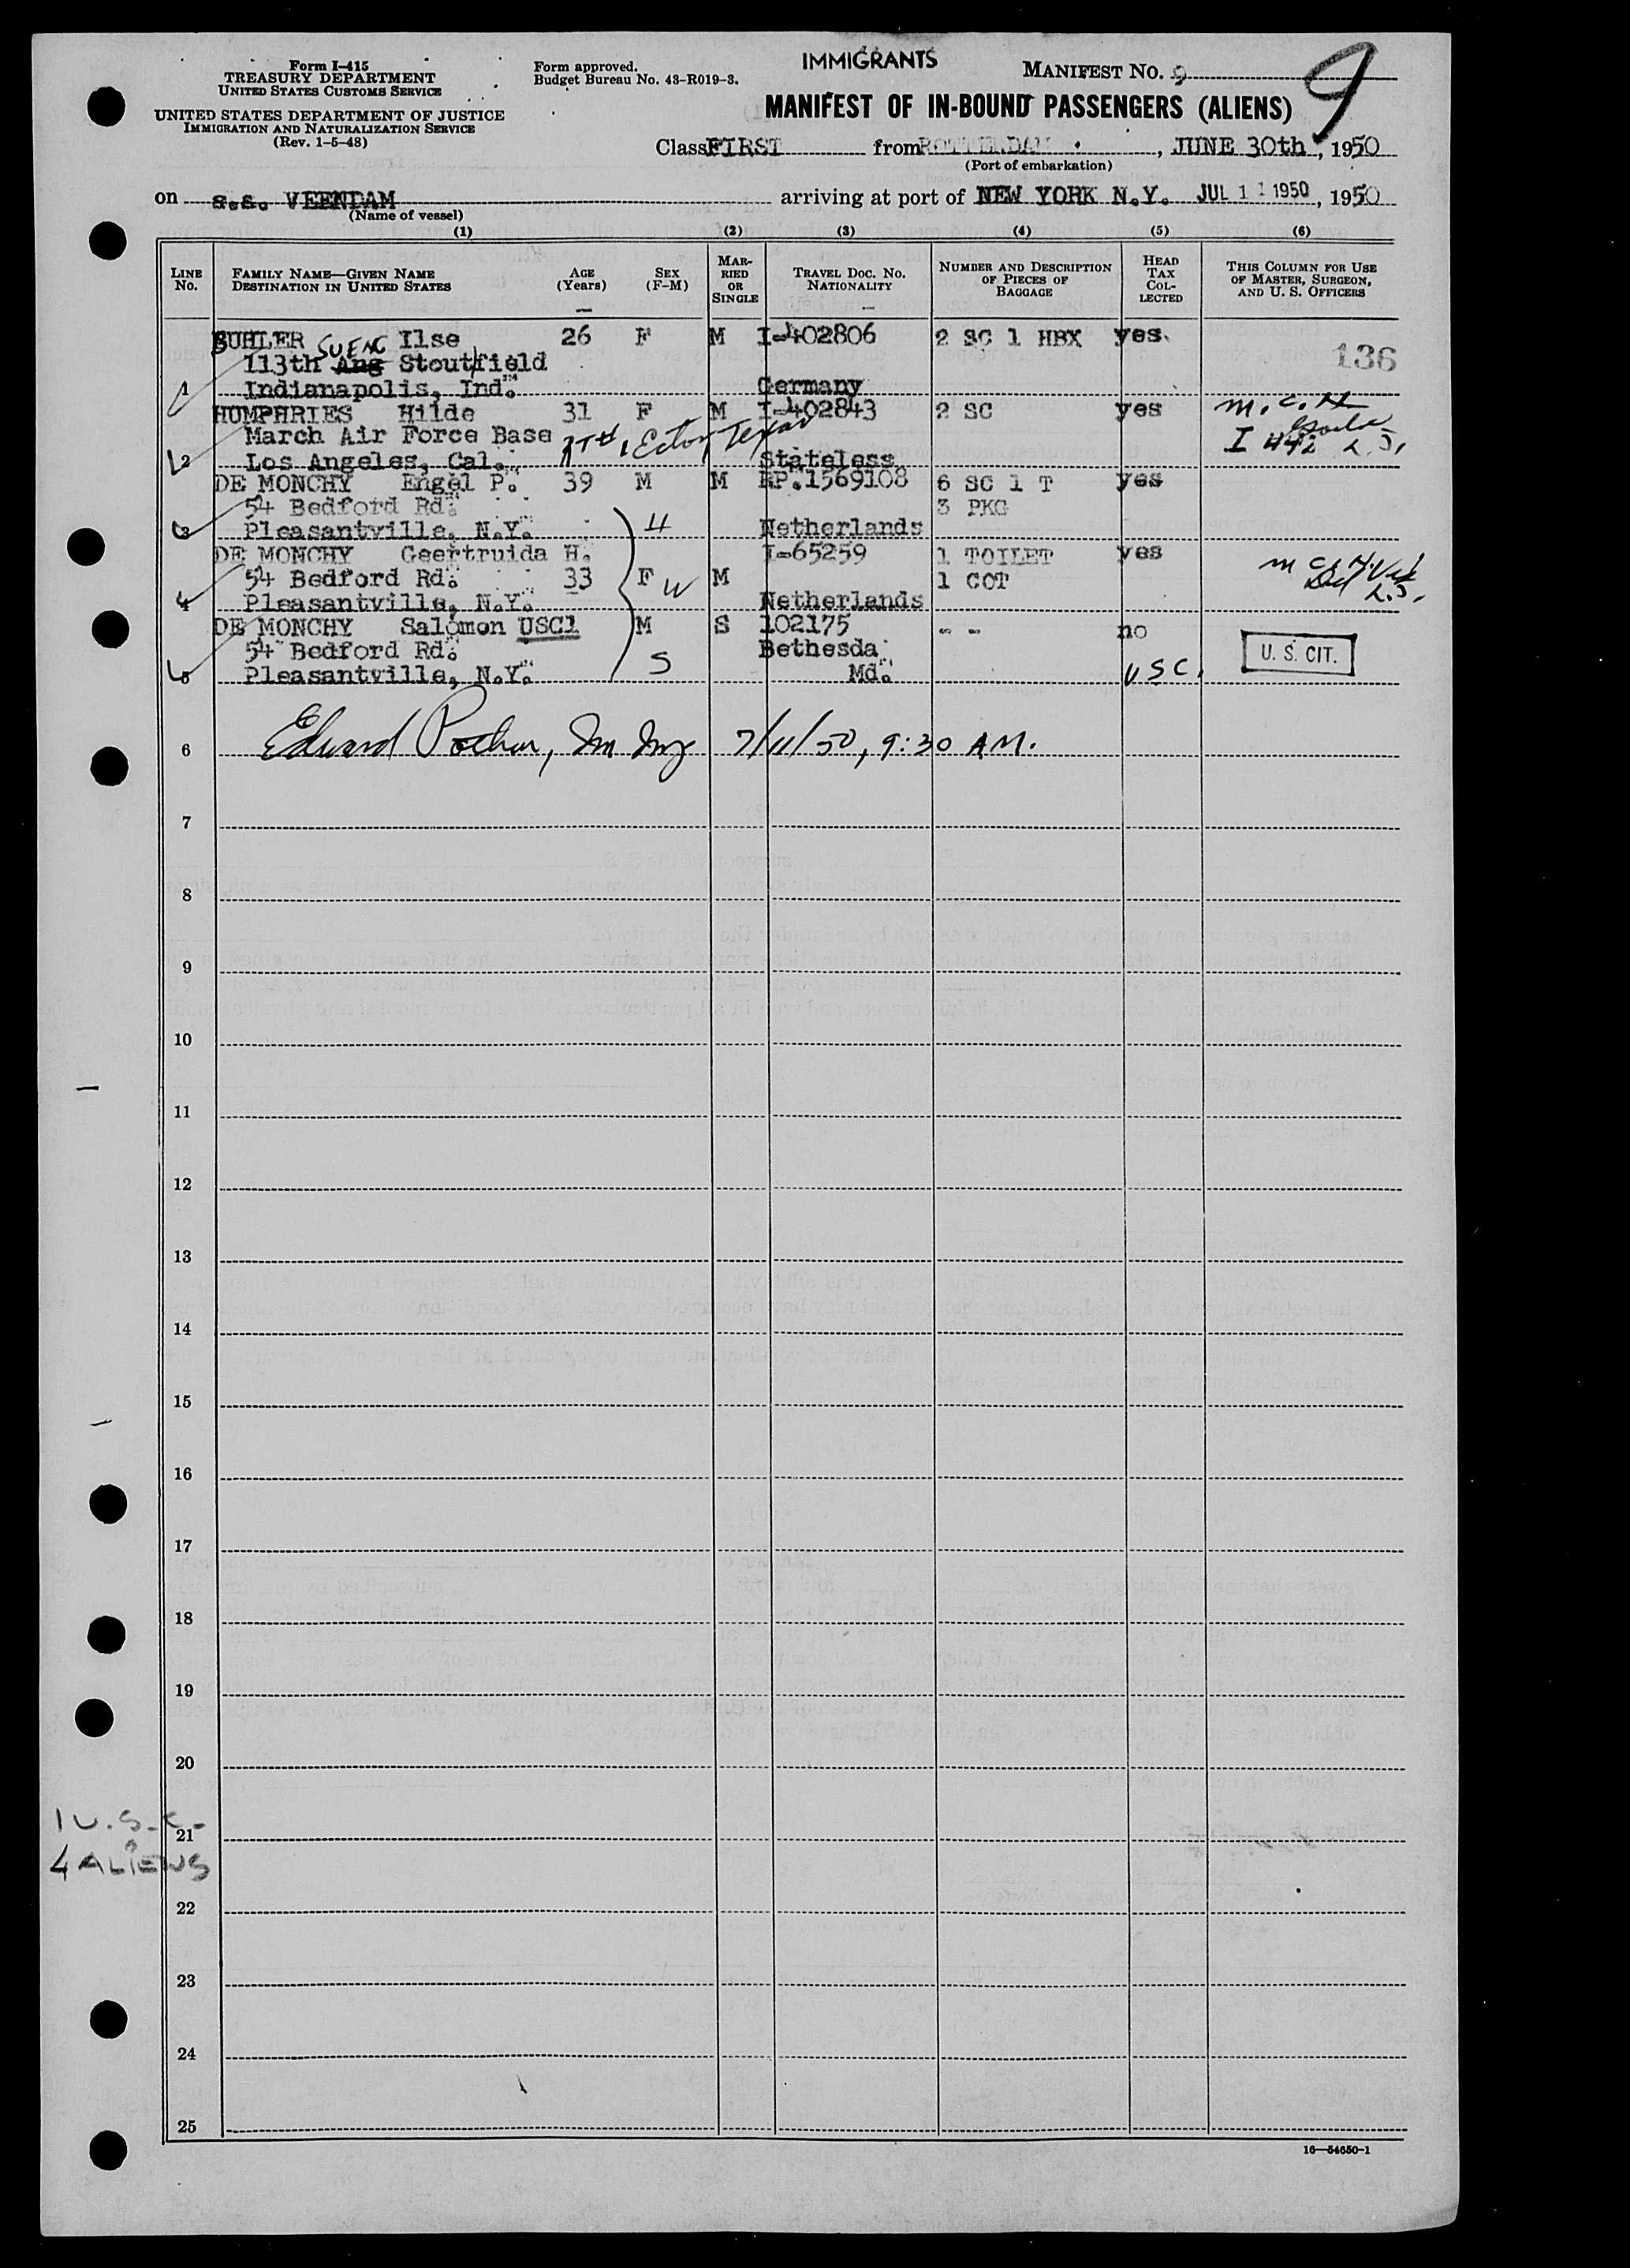 IMMIGRANTS
Form I-415
TREASURY DEPARTMENT
UNITED STATES CUSTOMS SERVICE
UNITED STATES DEPARTMENT OF JUSTICE
IMMIGRATION AND NATURALIZATION SERVICE
(Rev. 1-5-48)
Form approved.
Budget Bureau No. 43-R019-3.
MANIFEST NO. 9
9
MANIFEST OF IN-BOUND PASSENGERS (ALIENS)
Class FIRST from ROTTERDAM, JUNE 30th, 1950
(Port of embarkation)
on s.s. VEENDAM arriving at port of NEW YORK N.Y. JUL 11 1950, 1950
(Name of vessel)
(1) (2) (3) (4) (5) (6)
LINE No. FAMILY NAME—GIVEN NAME DESTINATION IN UNITED STATES AGE (Years) SEX (F-M) MARRIED OR SINGLE TRAVEL DOC. NO. NATIONALITY NUMBER AND DESCRIPTION OF PIECES OF BAGGAGE HEAD TAX COLLECTED THIS COLUMN FOR USE OF MASTER, SURGEON, AND U. S. OFFICERS
BUHLER Ilse 26 F M I-402806 2 SC 1 HBX yes.
113th Ang SUENC Stoutfield 136
1 Indianapolis, Ind. Germany
HUMPHRIES Hilde 31 F M I-402843 2 SC yes M.C.H
March Air Force Base Ector, Texas I 442 L.S.
2 Los Angeles, Cal. Stateless
DE MONCHY Engel P. 39 M M RP.1569108 6 SC 1 T yes
54 Bedford Rd. 3 PKG
3 Pleasantville, N.Y. H Netherlands
DE MONCHY Geertruida H. I-65259 1 TOILET yes
54 Bedford Rd. 33 F W M 1 COT
4 Pleasantville, N.Y. Netherlands L.S.
DE MONCHY Salomon USC1 M S 102175 - - no
54 Bedford Rd. Bethesda U. S. CIT.
5 Pleasantville, N.Y. S Md. USC.
6 Edward 7/11/50, 9:30 AM.
7
8
9
10
11
12
13
14
15
16
17
18
19
20
1 U.S.C.
21
4 ALIENS
22
23
24
25
16—54650-1